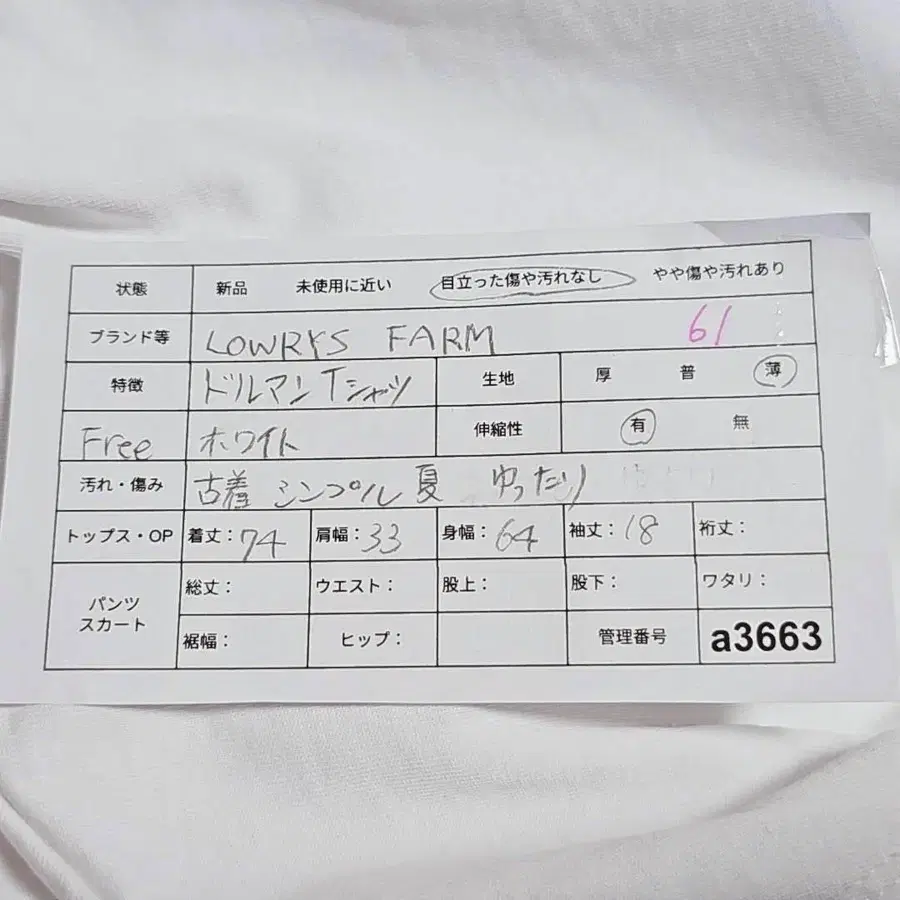 状態 新品 未使用に近い 目立った傷や汚れなし やや傷や汚れあり
ブランド等 LOWRYS FARM 61
特徴 ドルマンTシャツ 生地 厚 普 薄
Free ホワイト 伸縮性 有 無
汚れ・傷み 古着 シンプル 夏 ゆったり
トップス・OP 着丈:74 肩幅:33 身幅:64 袖丈:18 裄丈:
パンツ スカート 総丈: ウエスト: 股上: 股下: ワタリ:
裾幅: ヒップ: 管理番号 a3663